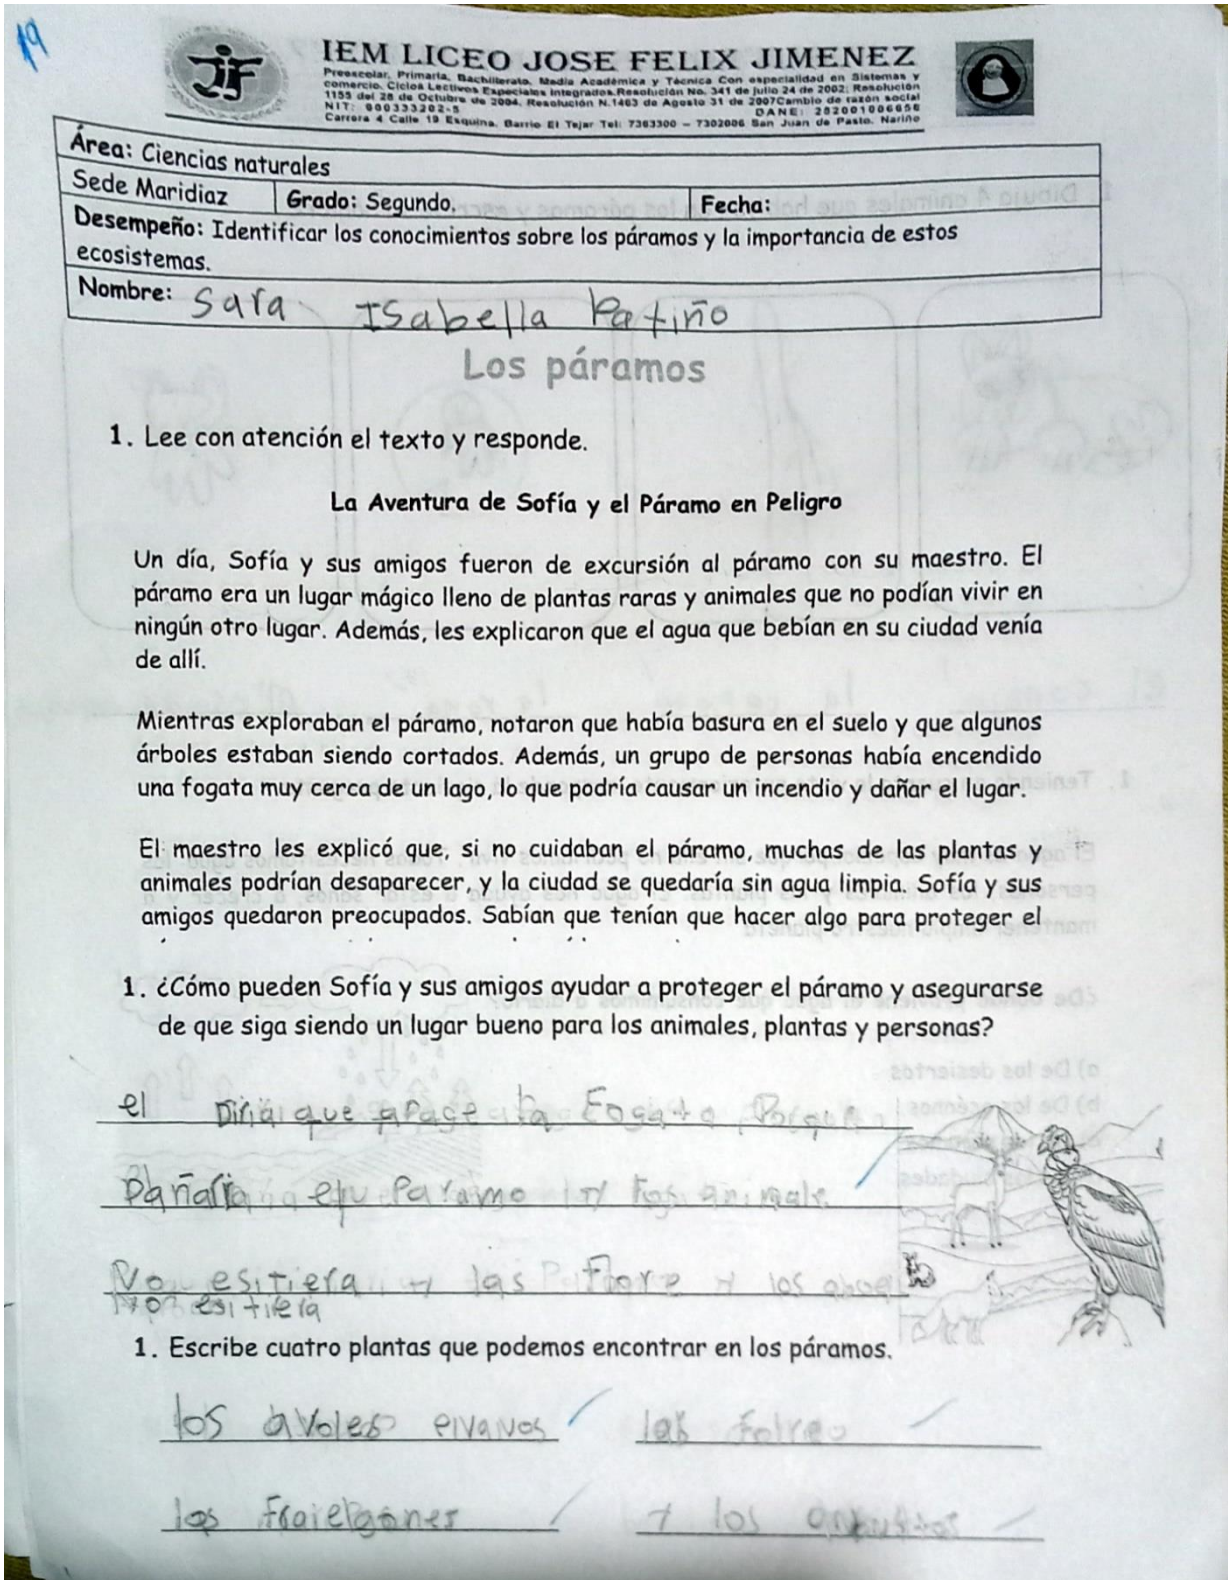 19
IEM LICEO JOSE FELIX JIMENEZ
Preescolar, Primaria, Bachillerato, Media Académica y Técnica Con especialidad en Sistemas y
comercio, Ciclos Lectivos Especiales Integrados.Resolución No. 341 de julio 24 de 2002; Resolución
1155 del 28 de Octubre de 2004, Resolución N.1463 de Agosto 31 de 2007Cambio de razón social
NIT: 800333202-5 DANE: 252001006656
Carrera 4 Calle 19 Esquina. Barrio El Tejar Tel: 7303300 – 7302006 San Juan de Pasto. Nariño
Área: Ciencias naturales
Sede Maridiaz Grado: Segundo. Fecha:
Desempeño: Identificar los conocimientos sobre los páramos y la importancia de estos
ecosistemas.
Nombre: Sara Isabella Patiño
Los páramos
1. Lee con atención el texto y responde.
La Aventura de Sofía y el Páramo en Peligro
Un día, Sofía y sus amigos fueron de excursión al páramo con su maestro. El
páramo era un lugar mágico lleno de plantas raras y animales que no podían vivir en
ningún otro lugar. Además, les explicaron que el agua que bebían en su ciudad venía
de allí.
Mientras exploraban el páramo, notaron que había basura en el suelo y que algunos
árboles estaban siendo cortados. Además, un grupo de personas había encendido
una fogata muy cerca de un lago, lo que podría causar un incendio y dañar el lugar.
El maestro les explicó que, si no cuidaban el páramo, muchas de las plantas y
animales podrían desaparecer, y la ciudad se quedaría sin agua limpia. Sofía y sus
amigos quedaron preocupados. Sabían que tenían que hacer algo para proteger el
1. ¿Cómo pueden Sofía y sus amigos ayudar a proteger el páramo y asegurarse
de que siga siendo un lugar bueno para los animales, plantas y personas?
el Diria que apage la Fogata Porque
Dañaria el Paramo y los animale
No esitiera y las Flore y los
No esitiera
1. Escribe cuatro plantas que podemos encontrar en los páramos.
los avoles eivavos las Folreo
los Fraielgones y los